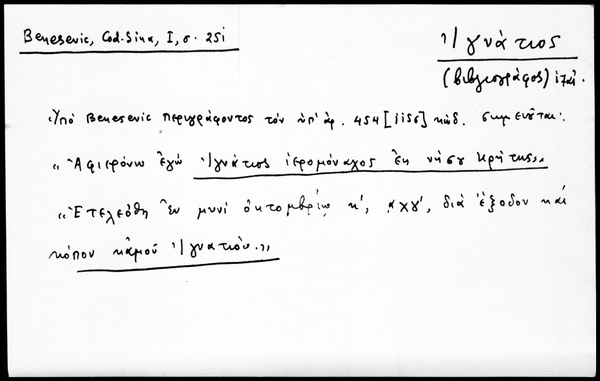 Benesevic, Cod. Sina, I, σ. 251
Ἰγνάτιος
(βιβλιογράφος) ιζαι.
Ὑπό Benesevic περιγράφοντος τόν ὑπ' ἀρ. 454 [1156] κώδ. σημειοῦται:
"Ἀφιερόνω ἐγώ Ἰγνάτιος ἱερομόναχος ἐκ νήσου Κρήτης"
"Ἐτελεόθη ἐν μυνί ὀκτομβρίω κ', αχγ', διά ἐξοδον καί
κόπον κἀμοῦ Ἰγνατιου."